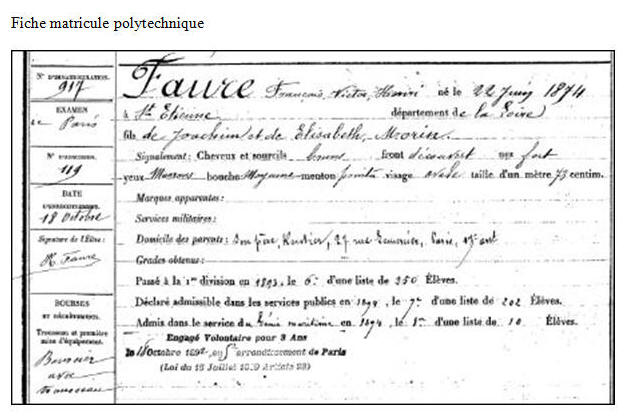 Fiche matricule polytechnique
N° D'IMMATRICULATION.
917
EXAMEN
de Paris
N° D'ADMISSION.
119
DATE
D'ENREGISTREMENT.
18 Octobre
Signature de l'Élève :
H. Faure
BOURSES
ET DÉGRÈVEMENTS.
Trousseau et première
mise d'équipement.
Boursier
avec
trousseau
Faure François, Victor, Henri né le 22 Juin 1874
à St Etienne département de la Loire
fils de Joachim et de Elisabeth, Morin.
Signalement : Cheveux et sourcils bruns front découvert nez fort
yeux Marrons bouche Moyenne menton pointu visage ovale taille d'un mètre 73 centim.
Marques apparentes :
Services militaires :
Domicile des parents : Son père, 27 rue Paris, 17e arrt
Grades obtenus :
Passé à la 1re division en 1893, le 6e d'une liste de 250 Élèves.
Déclaré admissible dans les services publics en 1894, le 7e d'une liste de 202 Élèves.
Admis dans le service du Génie maritime en 1894, le 1er d'une liste de 10 Élèves.
Engagé Volontaire pour 3 Ans
le 18 Octobre 1892, au 5e arrondissement de Paris
(Loi du 15 Juillet 1889 Article 23)